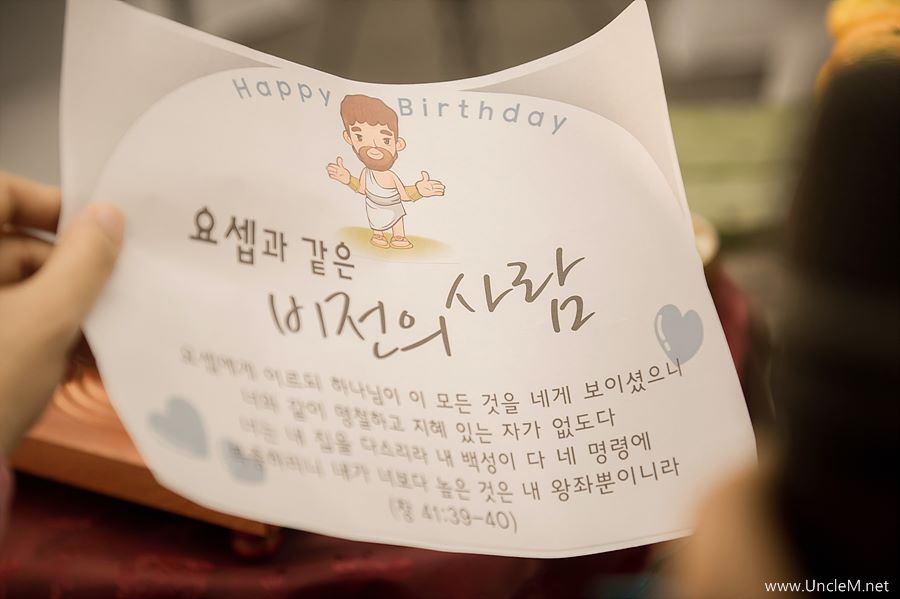 Happy Birthday
요셉과 같은
비전의 사람
요셉에게 이르되 하나님이 이 모든 것을 네게 보이셨으니
너와 같이 명철하고 지혜 있는 자가 없도다
너는 내 집을 다스리라 내 백성이 다 네 명령에
복종하리니 내가 너보다 높은 것은 내 왕좌뿐이니라
(창 41:39-40)
www.UncleM.net